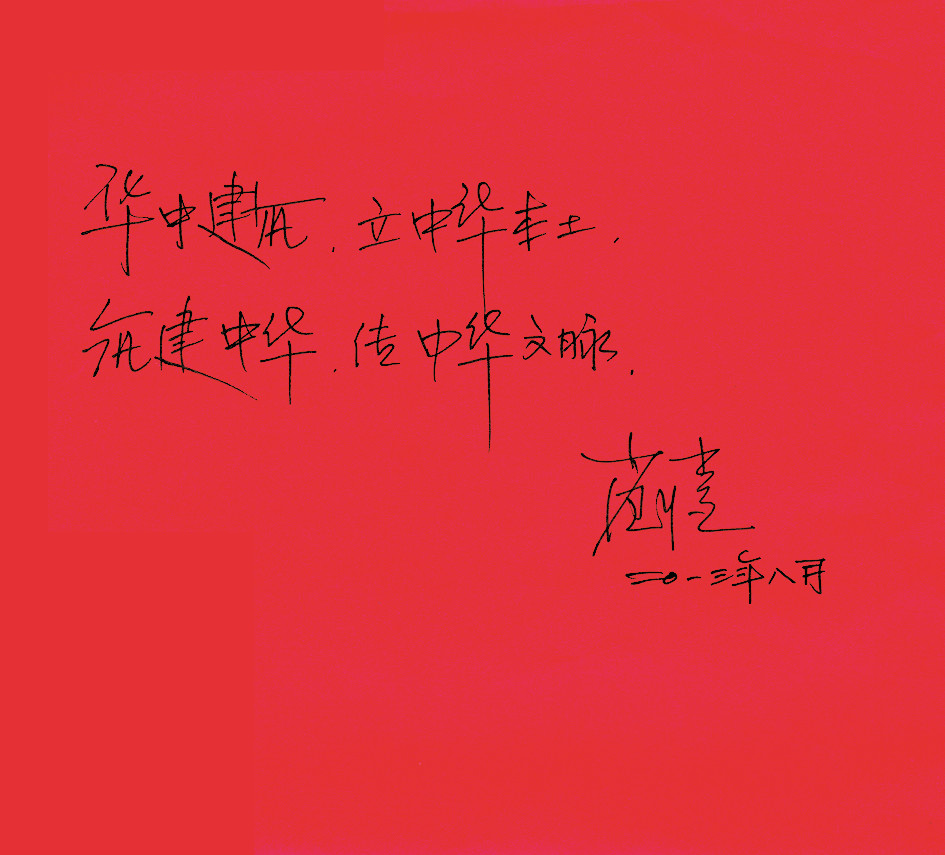 华中建筑,立中华本土,
筑建中华,传中华文脉.
二〇一三年八月